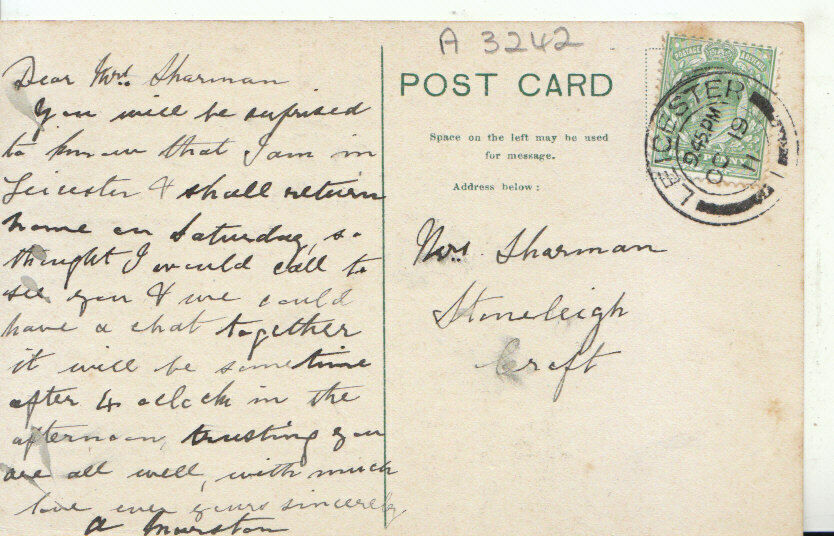 A 3242
POST CARD
Space on the left may be used
for message.
Address below:
LEICESTER
9.45 PM
OC 19
11
POSTAGE
Dear Mrs. Sharman
You will be suprised
to know that I am in
Leicester & shall return
home on Saturday, so
thought I would call to
see you & we could
have a chat together
it will be sometime
after 4 oclock in the
afternoon, trusting you
are all well, with much
love ever yours sincerely
A Marston
Mrs. Sharman
Stoneleigh
Croft